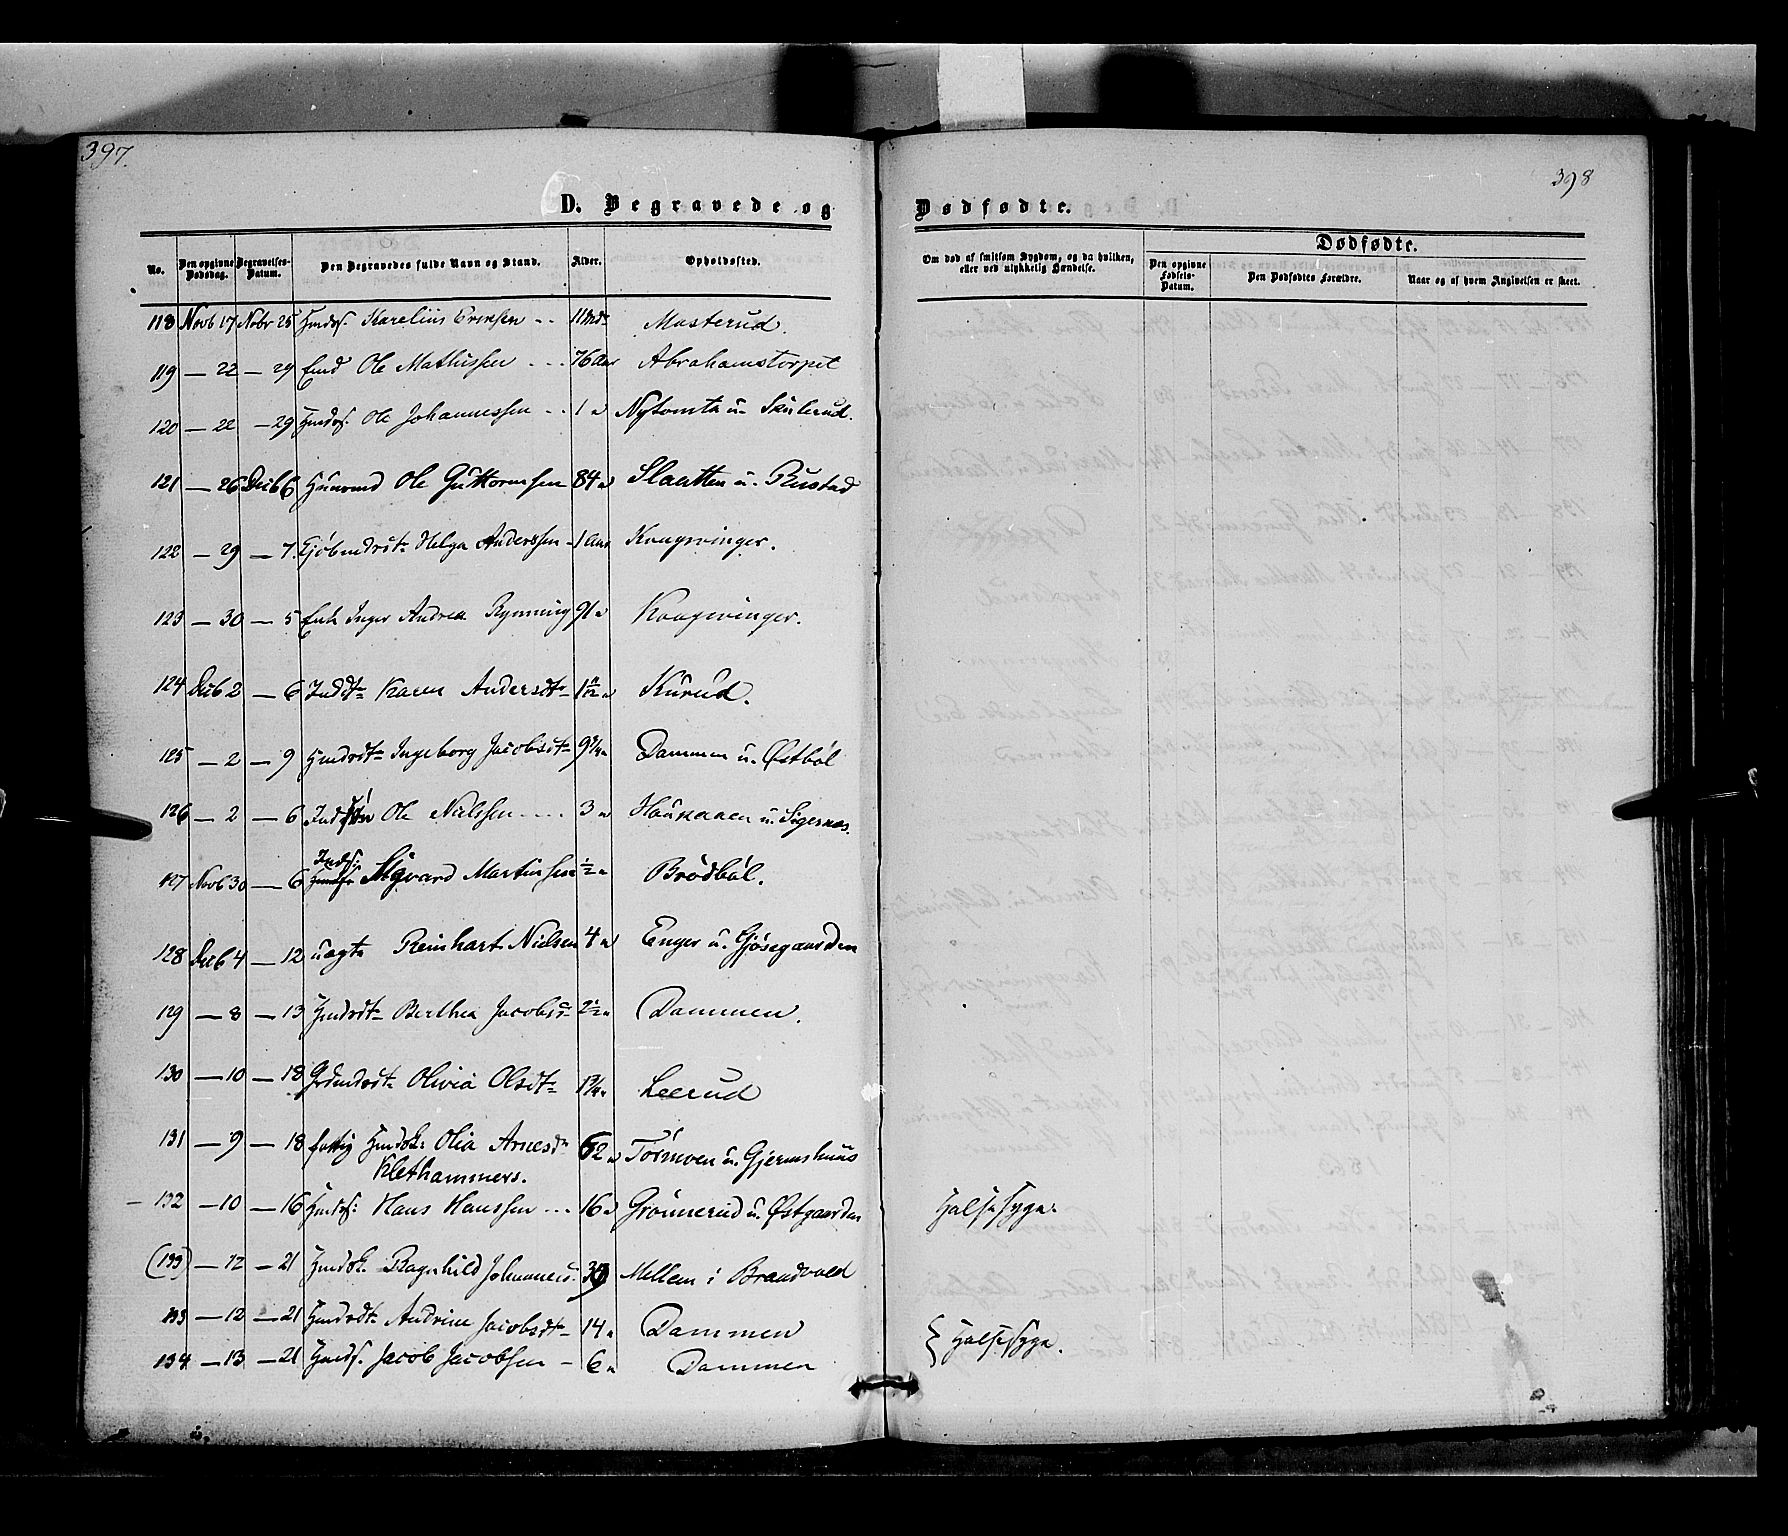 397.
398
D. Begravede og
Dødfødte.
No. Den opgivne Dødsdag. Begravelses-Datum. Den Begravedes fulde Navn og Stand. Alder. Opholdssted.
Om død af smitsom Sygdom, og da hvilken, eller ved ulykkelig Hændelse.
Dødfødte.
Den opgivne Fødsels-Datum. Den Dødfødtes Forældre. Naar og af hvem Angivelsen er skeet.
118 Novb 17 Nobr 25 Hmds. Karelius Eriksen - - 11 Mdr Masterud.
119 — 22 — 29 Emd Ole Mathissen - - - 76 Aar Abrahamstorpet
120 — 22 — 29 Hmds. Ole Johannessen - - 1 " Nytomta u. Skulerud.
121 — 26 Decb 6 Huusmd Ole Guttormsen 84 " Slaatten u. Rustad
122 — 29 — 7. Kjøbmdsdtr Helga Anderssen - 1 Aar Kongsvinger.
123 — 30 — 5 Enke Inger Andrea Rynning 91 " Kongsvinger.
124 Decb 2 — 6 Inddtr Karen Andersdtr Kurud.
125 — 2 — 9 Hmdsdtr Ingeborg Jacobsdtr 9 3/4 " Dammen u. Østbøl
126 — 2 — 6 Ole Nielssen - - - - 3 " Haukaaen u. Sigernæs.
127 Novb 30 — 6 Inds. Sigvard Martinsen 1/2 " Brødbøl.
128 Decb 4 — 12 uægte Reinhart Nielsen 4 " Enger u. Gjøsegaarden
129 — 8 — 13 Hmdsdtr Berthea Jacobsd 2 1/2 " Dammen.
130 — 10 — 18 Grdmdsdtr Olivia Olsdtr 1 3/4 " Leerud
131 — 9 — 18 fattig Hmdsk. Olia Arnesdtr 62 " Tørmoen u. Gjermshuus
Klethammers.
— 132 — 10 — 16 Hmds. Hans Hanssen - - - 16 " Grønnerud u. Østgaarden Halssyge.
(133) — 12 — 21 Hmdsk. Ragnhild Johannesd. Mellem i Brandvold
133 — 12 — 21 Hmdsdtr Andrine Jacobsdtr - 14 " Dammen
134 — 13 — 21 Hmds. Jacob Jacobsen - 6 " Dammen
} Halssyge.